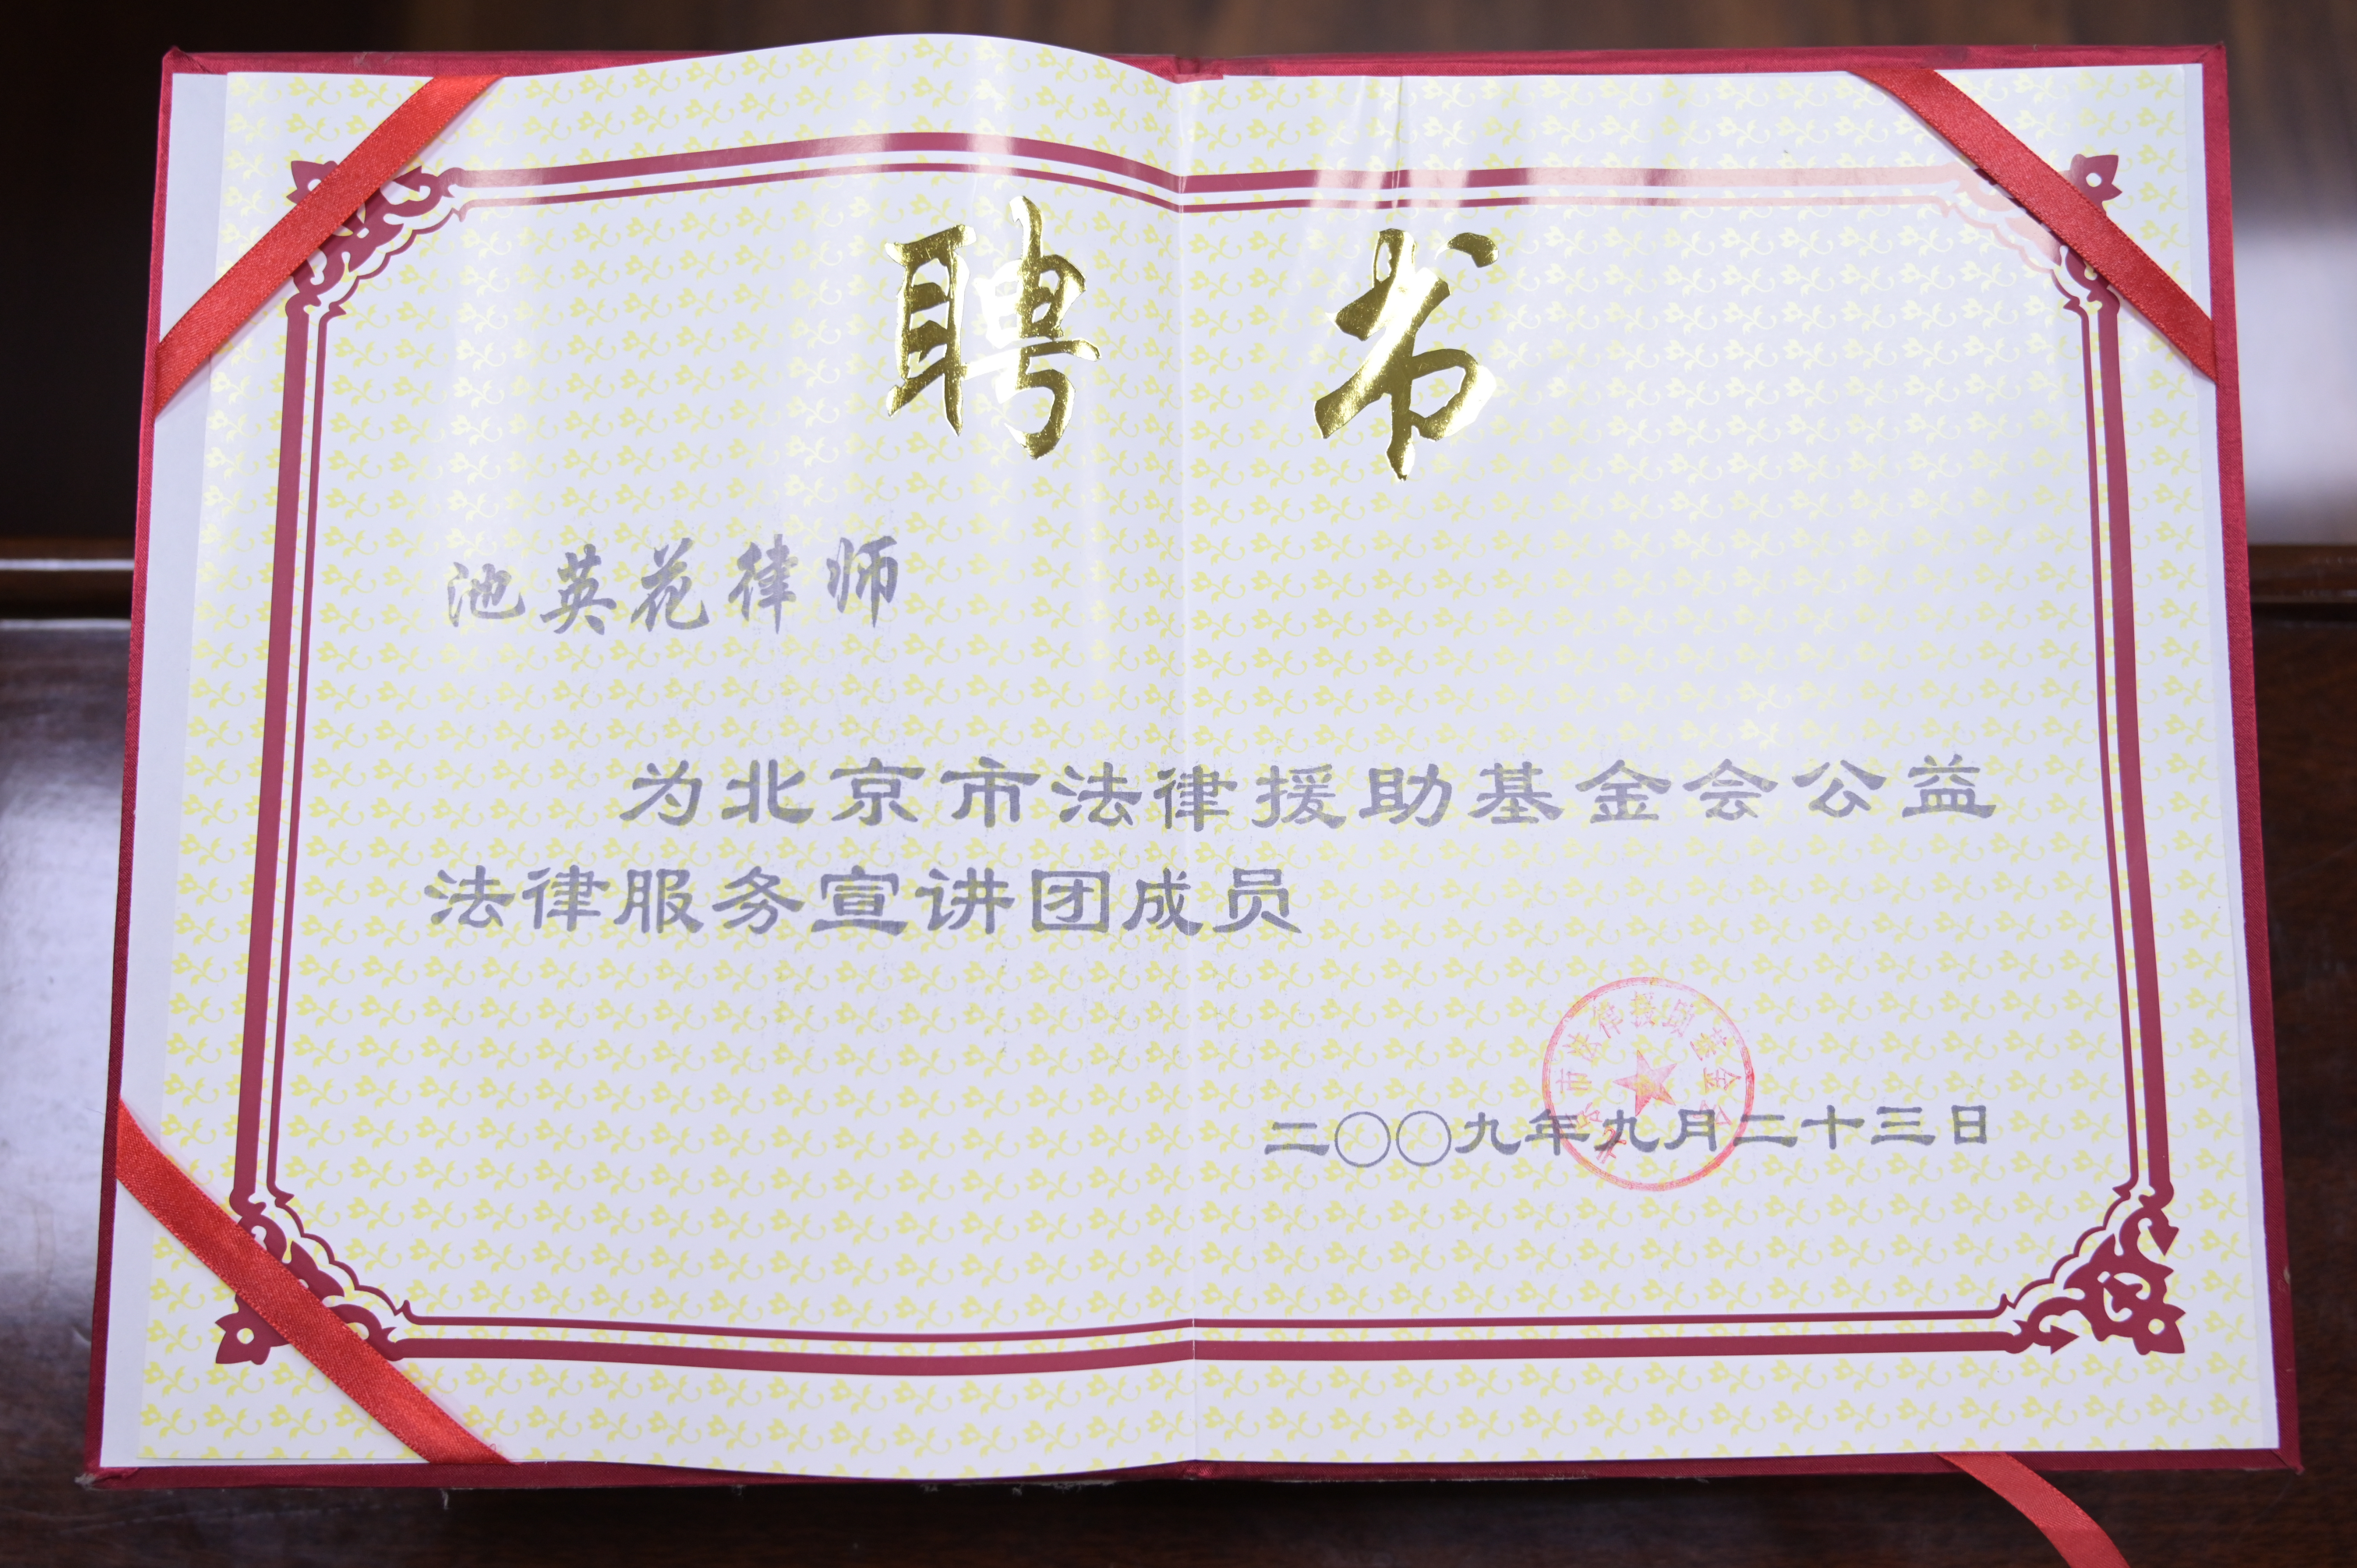 聘书
池英花律师
为北京市法律援助基金会公益
法律服务宣讲团成员
北京市法律援助基金会
二〇〇九年九月二十三日